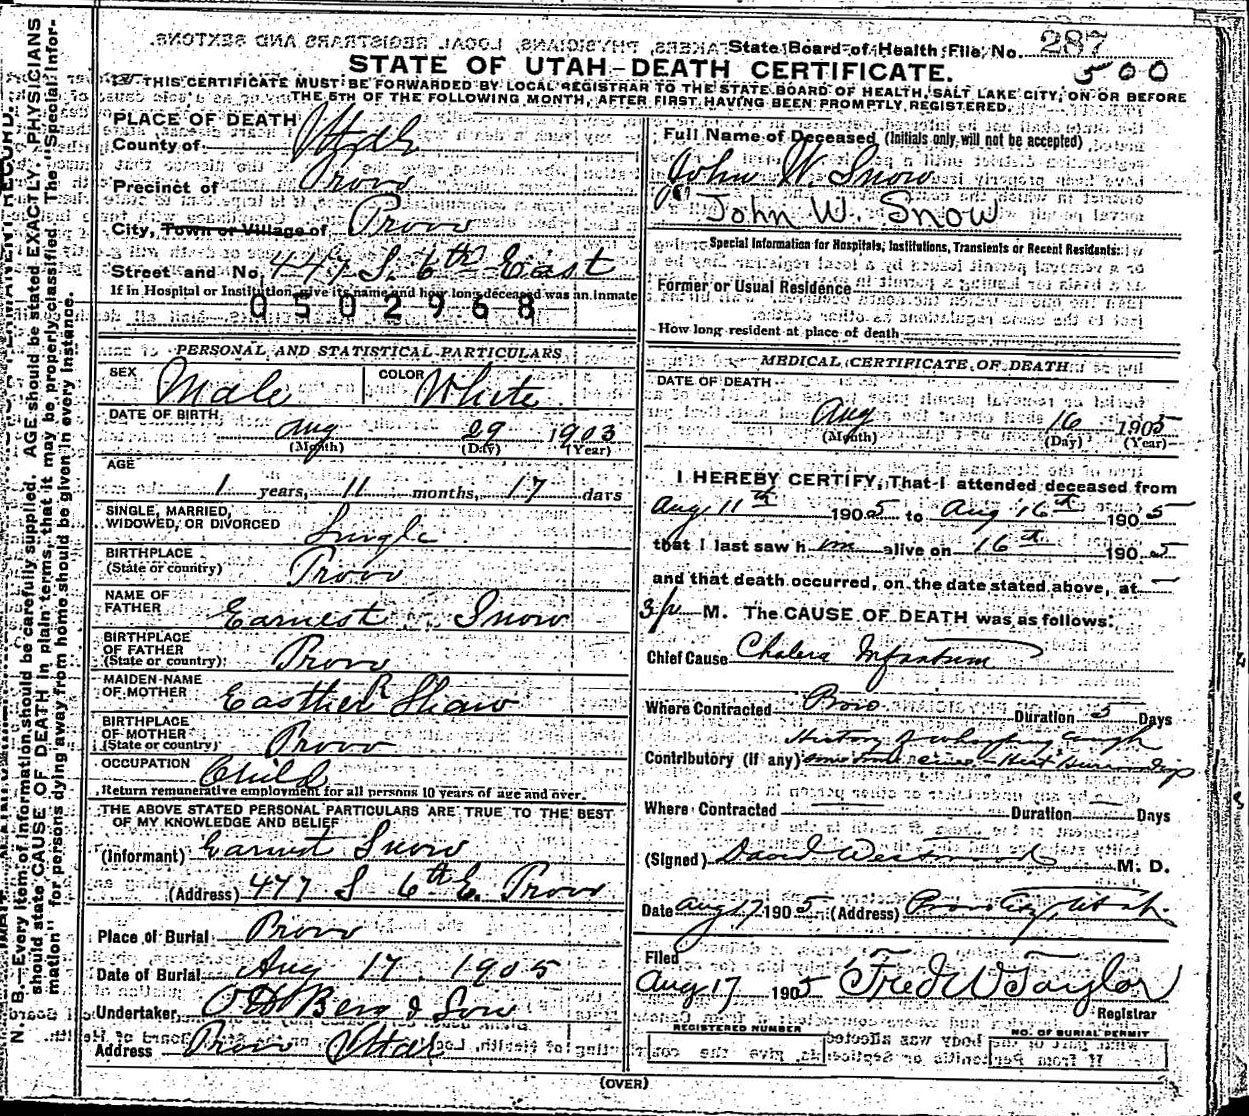 State Board of Health File No. 287
500
STATE OF UTAH—DEATH CERTIFICATE.
THIS CERTIFICATE MUST BE FORWARDED BY LOCAL REGISTRAR TO THE STATE BOARD OF HEALTH, SALT LAKE CITY, ON OR BEFORE
THE 5TH OF THE FOLLOWING MONTH, AFTER FIRST HAVING BEEN PROMPTLY REGISTERED.
N. B.—Every item of information should be carefully supplied. AGE should be stated EXACTLY. PHYSICIANS
should state CAUSE OF DEATH in plain terms, that it may be properly classified. The "Special Infor-
mation" for persons dying away from home should be given in every instance.
PLACE OF DEATH
County of Utah
Precinct of Provo
City, Town or Village of Provo
Street and No. 447 S. 6th East
If in Hospital or Institution, give its name and how long deceased was an inmate
0502968
PERSONAL AND STATISTICAL PARTICULARS
SEX Male COLOR White
DATE OF BIRTH
Aug 29 1903
(Month) (Day) (Year)
AGE
1 years, 11 months, 17 days
SINGLE, MARRIED,
WIDOWED, OR DIVORCED Single
BIRTHPLACE
(State or country) Provo
NAME OF
FATHER Earnest Snow
BIRTHPLACE
OF FATHER
(State or country) Provo
MAIDEN NAME
OF MOTHER Easther Shaw
BIRTHPLACE
OF MOTHER
(State or country) Provo
OCCUPATION Child
Return remunerative employment for all persons 10 years of age and over.
THE ABOVE STATED PERSONAL PARTICULARS ARE TRUE TO THE BEST
OF MY KNOWLEDGE AND BELIEF
(Informant) Earnest Snow
(Address) 477 S 6th E. Provo
Place of Burial Provo
Date of Burial Aug 17, 1905
Undertaker, Berg & Son
Address Provo Utah
Full Name of Deceased (Initials only will not be accepted)
John W. Snow
John W. Snow
Special Information for Hospitals, Institutions, Transients or Recent Residents:
Former or Usual Residence
How long resident at place of death
MEDICAL CERTIFICATE OF DEATH
DATE OF DEATH
Aug 16 1905
(Month) (Day) (Year)
I HEREBY CERTIFY, That I attended deceased from
Aug 11th 1905 to Aug 16th 1905
that I last saw h im alive on 16th 1905
and that death occurred, on the date stated above, at
3 p M. The CAUSE OF DEATH was as follows:
Chief Cause Cholera Infantum
Where Contracted Provo Duration 5 Days
History of whooping cough
Contributory (if any)
Where Contracted Duration Days
(Signed) David Westwood M. D.
Date Aug 17 1905 (Address) Provo City, Utah
Filed
Aug 17 1905 Fred W Taylor
Registrar
REGISTERED NUMBER
NO. OF BURIAL PERMIT
(OVER)